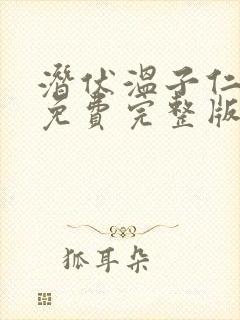 潜伏温子仁
免费完整版
狐耳朵